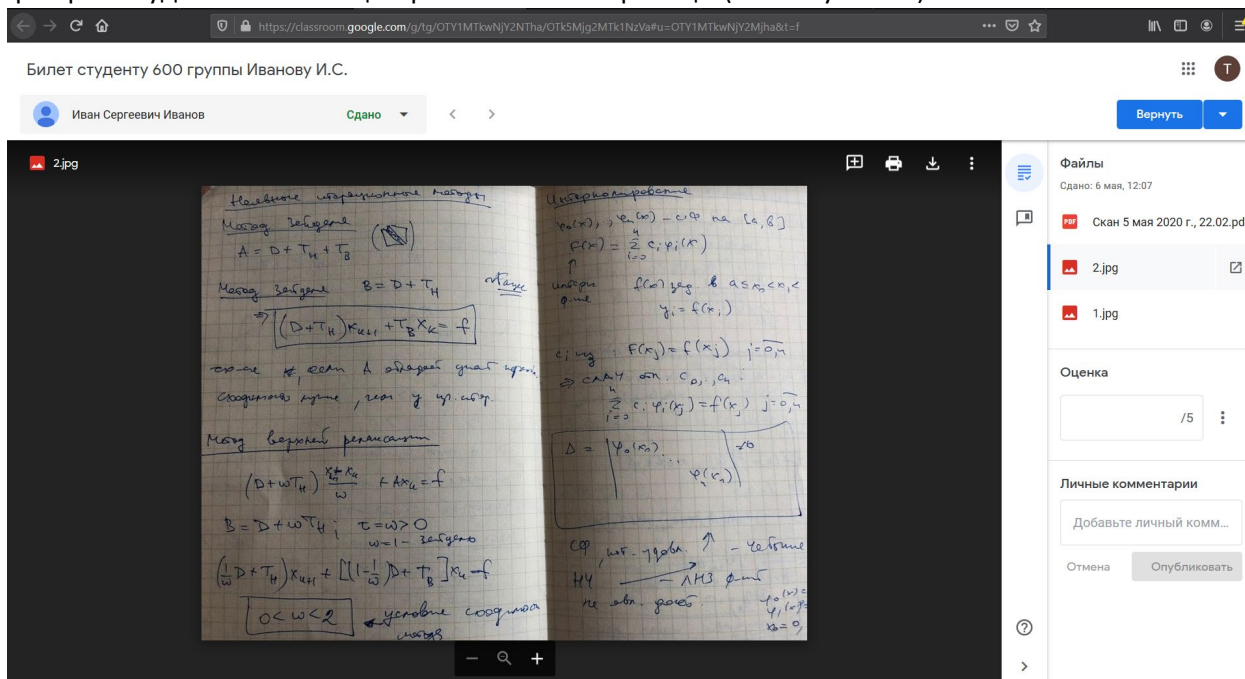 https://classroom.google.com/g/tg/OTY1MTkwNjY2NTha/OTk5Mjg2MTk1NzVa#u=OTY1MTkwNjY2Mjha&t=f
Билет студенту 600 группы Иванову И.С.
T
Иван Сергеевич Иванов
Сдано
Вернуть
2.jpg
Неявные итерационные методы
Метод Зейделя
A = D + T_н + T_в
Метод Зейделя B = D + T_н
⇒ (D+T_н)x_{k+1} + T_в x_k = f
если A обладает
Метод верхней релаксации
+ Ax_k = f
B = D + ωT_н; τ=ω>0
ω=1 – Зейделя
(1/ω D + T_н)x_{k+1} + [(1-1/ω)D + T_в]x_k = f
0<ω<2 условие сходимости
метода
Интерполирование
на [a, b]
F(x) = Σ c_i φ_i(x)
y_i = f(x_i)
c_i из: F(x_j) = f(x_j) j=0,n
⇒ СЛАУ отн. c_0,..,c_n:
Σ c_i φ_i(x_j) = f(x_j) j=0,n
Δ = φ_0(x_0)... φ_n(x_n) ≠0
ЛНЗ
не явл.
Файлы
Сдано: 6 мая, 12:07
PDF Скан 5 мая 2020 г., 22.02.pd
2.jpg
1.jpg
Оценка
/5
Личные комментарии
Добавьте личный комм...
Отмена
Опубликовать